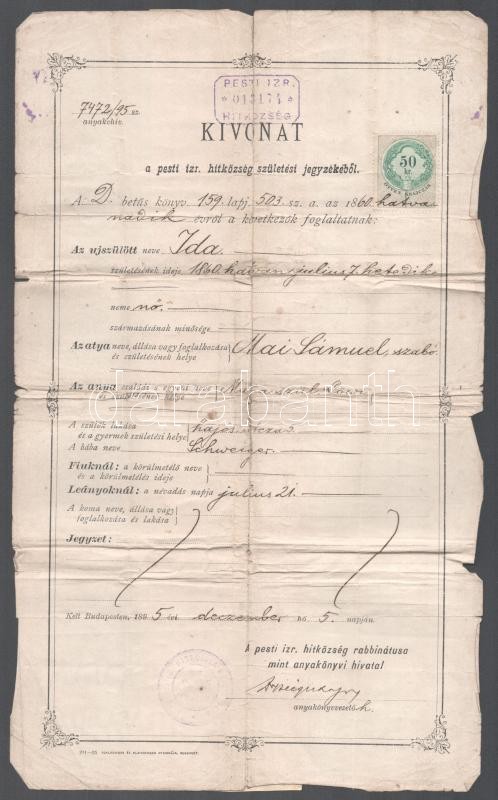 PESTI IZR.
* 013174 *
HITKÖZSÉG
7472/95 sz.
anyakchiv.
KIVONAT
a pesti izr. hitközség születési jegyzékéből.
50
kr.
ÖTVEN KRAJCZÁR
A D. betüs könyv 159. lapj. 503. sz. a. az 1860. hatva
nadik évről a következők foglaltatnak:
Az ujszülött neve Ida
születésének ideje 1860. hatvan július 7. hetedik
neme nő.
származásának minősége
Az atya neve, állása vagy foglalkozása és születésének helye Mai Sámuel, szabó
Az anya családi s egyéb neve és születésének helye
A szülők lakása és a gyermek születési helye hajós utcza 5.
A bába neve Schweiger.
Fiuknál: a körülmetélő neve és a körülmetélés ideje
Leányoknál: a névadás napja július 21.
A koma neve, állása vagy foglalkozása és lakása
Jegyzet:
darabanth
Kelt Budapesten, 1895 évi deczember hó 5. napján.
A pesti izr. hitközség rabbinátusa
mint anyakönyvi hivatal
anyakönyvvezető h.